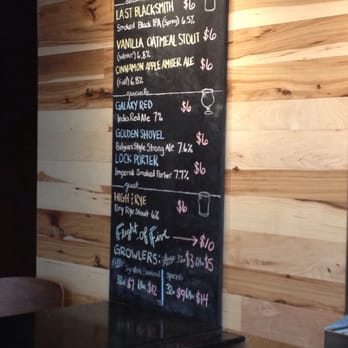 LAST BLACKSMITH $6
Smoked Black IPA (Spring) 6.5%
VANILLA OATMEAL STOUT $6
(winter) 6.8%
CINNAMON APPLE AMBER ALE $6
(Fall) 6.8%
specials
GALAXY RED $6
India Red Ale 7%
GOLDEN SHOVEL $6
Belgian Style Strong Ale 7.6%
LOCK PORTER $6
Imperial Smoked Porter 7.7%
guest
HIGH & RYE $6
Rye Stout 6%
Flight of Five → $10
GROWLERS: 32oz $3 64oz $5
Signature/seasonal specials
32oz $7 64oz $12 32oz $9 64oz $14